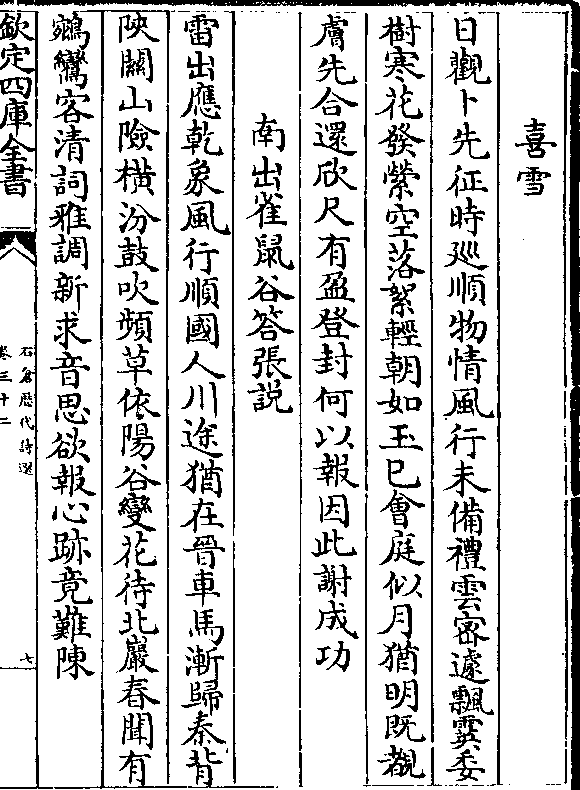 喜雪
日觀卜先征時廵順物情風行未備禮雲宻遽飄霙委
樹寒花發縈空落絮輕朝如玉已會庭似月猶明既覩
膚先合還欣尺有盈登封何以報因此謝成功
南出雀䑕谷答張説
雷出應乾象風行順國人川途猶在晉車馬漸歸秦背
陜闗山險橫汾鼓吹頻草依陽谷變花待北巖春聞有
鵷鸞客清詞雅調新求音思欲報心跡竟難陳
欽定四庫全書
石倉歴代詩選
卷三十二
七